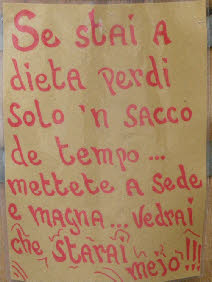 Se stai a
dieta perdi
solo 'n sacco
de tempo...
mettete a sede
e magna... vedrai
che starai
mejo!!!